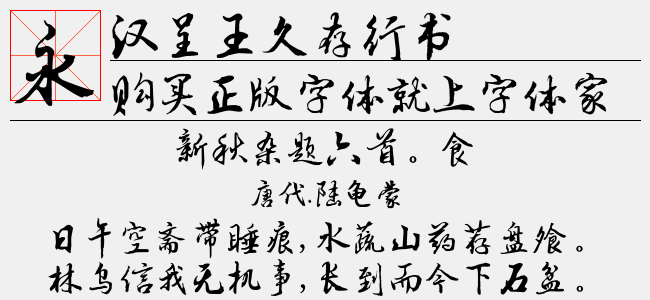 永
汉呈王久存行书
购买正版字体就上字体家
新秋杂题六首。食
唐代.陆龟蒙
日午空斋带睡痕,水蔬山药荐盘飧。
林乌信我无机事,长到而今下石盆。